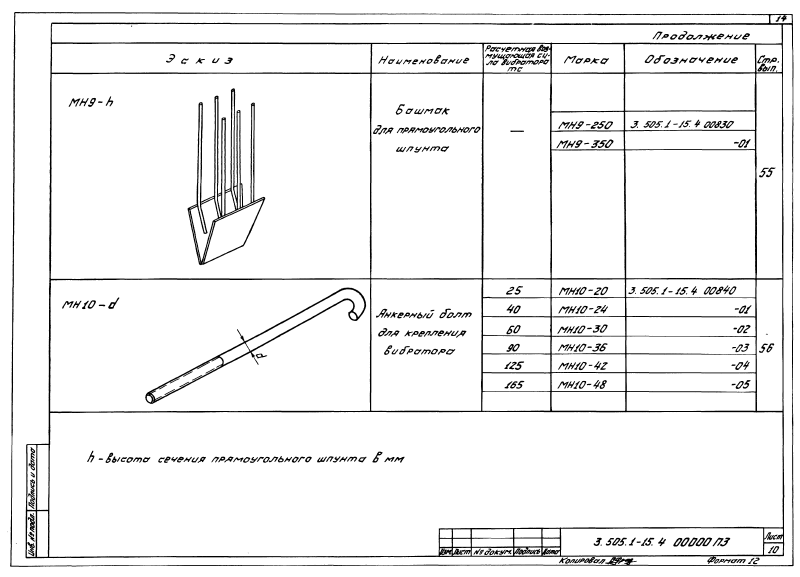 14
Продолжение
Эскиз
Наименование
Расчетная воз-
мущающая си-
ла вибратора
тс
Марка
Обозначение
Стр.
вып.
МН9-h
Башмак
для прямоугольного
шпунта
—
МН9-250 3.505.1-15.4 00830
МН9-350 -01
55
МН10-d
d
Анкерный болт
для крепления
вибратора
25 МН10-20 3.505.1-15.4 00840
40 МН10-24 -01
60 МН10-30 -02
90 МН10-36 -03
125 МН10-42 -04
165 МН10-48 -05
56
h - высота сечения прямоугольного шпунта в мм
Инв. № подл. Подпись и дата
Изм. Лист № докум. Подпись Дата
3.505.1-15.4 00000 ПЗ
Лист
10
Копировал
Формат 12